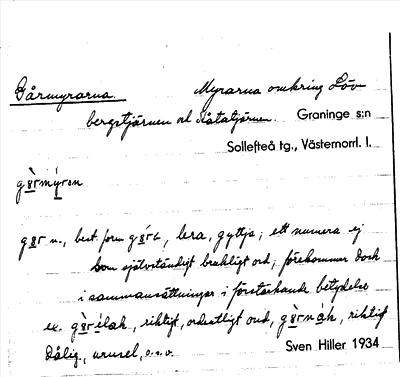 Gårmyrarna. Myrarna omkring Löv-
bergstjärnen och Låtatjärnen. Graninge s:n
Sollefteå tg., Västernorrl. l.
gòrmýron
gor n., best. form górt, lera, gyttja; ett numera ej
som självständigt brukligt ord, förekommer dock
i sammansättningar i förstärkande betydelse
ex. gòrélak, riktigt, ordentligt ond, riktigt
dålig, urusel, o.s.v. Sven Hiller 1934